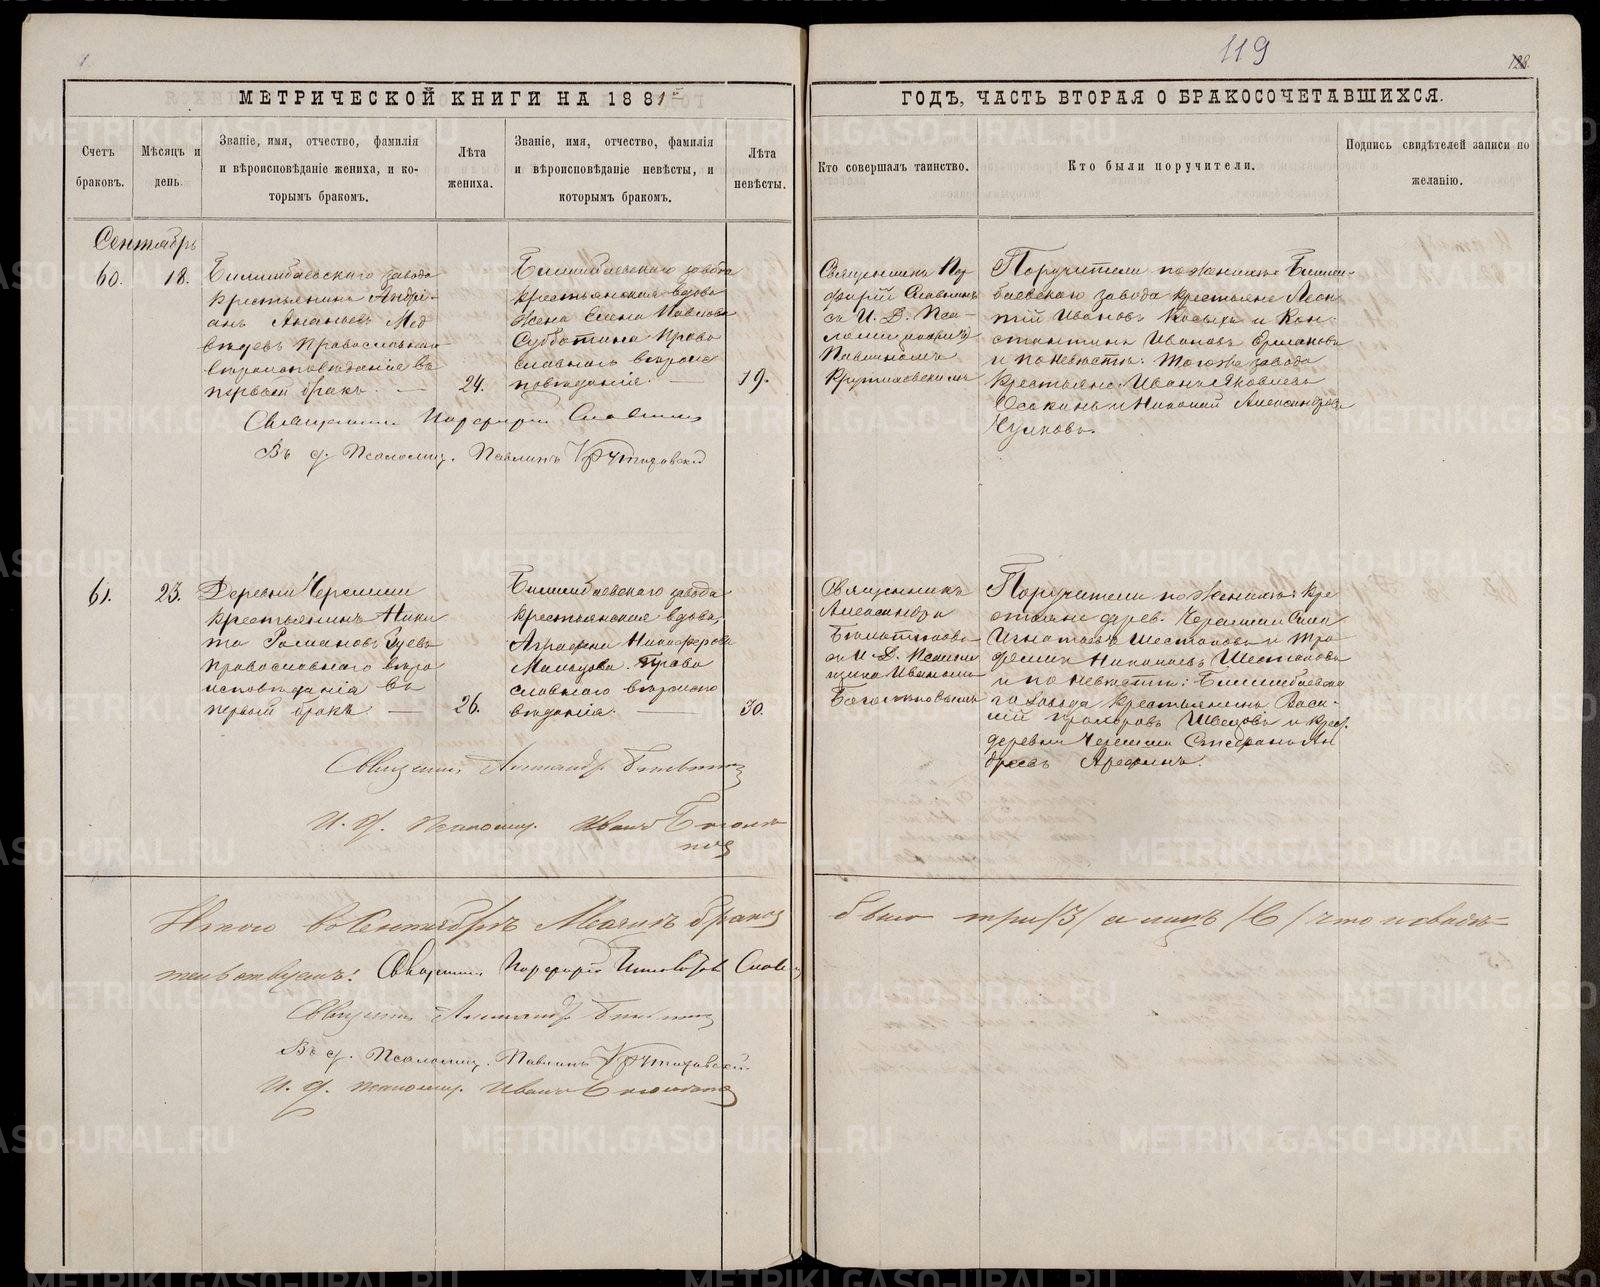 119
128.
МЕТРИЧЕСКОЙ КНИГИ НА 1881й
ГОДЪ, ЧАСТЬ ВТОРАЯ О БРАКОСОЧЕТАВШИХСЯ.
Счетъ браковъ.
Мѣсяцъ и день.
Званіе, имя, отчество, фамилія
и вѣроисповѣданіе жениха, и ко-
торымъ бракомъ.
Лѣта
жениха.
Званіе, имя, отчество, фамилія
и вѣроисповѣданіе невѣсты, и
которымъ бракомъ.
Лѣта
невѣсты.
Кто совершалъ таинство.
Кто были поручители.
Подпись свидѣтелей записи по
желанію.
Сентябрь
60.
18.
Билимбаевскаго завода
крестьянинъ Андрі-
анъ Ананьевъ Мед
вѣдевъ Православнаго
вѣроисповѣданія въ
первый бракъ. —
24.
Билимбаевскаго завода
крестьянская вдова
Жена Елена Павлова
Субботина Право
славнаго вѣроис
повѣданія. —
19.
Священникъ Пор
фирій Славнинъ
съ И. Д. Пса-
ломщикомъ
Павлиномъ
Крутиховскимъ
Поручители по женихѣ: Билим-
баевскаго завода крестьяне Леон
тій Ивановъ Косыхъ и Кон-
стантинъ Ивановъ Ермаковъ
и по невѣстѣ: того же завода
крестьяне: Иванъ Яковлевъ
Осокинъ и Николай Александровъ
Чулковъ.
Священникъ Порфирій Славнинъ
Въ д. Псаломщ. Павлинъ Крутиховскій
61.
23.
Деревни Черемши
крестьянинъ Ники
та Романовъ Зуевъ
православнаго вѣро
исповѣданія въ
первый бракъ. —
26.
Билимбаевскаго завода
крестьянская вдова,
Аграфена Никифорова
Мальцова. Право
славнаго вѣроиспо
вѣданія. —
30.
Священникъ
Александръ
съ И. Д. Псалом
щика Иваномъ
Поручители по женихѣ: кре
стьяне дерев. Черемши Сила
Игнатьевъ Шестаковъ и Тро
фимъ Николаевъ Шестаковъ
и по невѣстѣ: Билимбаевска
го завода крестьянинъ Васи-
лій Прохоровъ Швецовъ и крес.
деревни Черемши Стефанъ Ан
дреевъ Арефинъ.
Священникъ Александръ
И. д. Псаломщ. Иванъ
Итого въ Сентябрѣ Мѣсяцѣ браковъ
было три /3/ а лицъ /6/ что и свидѣ-
тельствуемъ: Священникъ Порфирій Славнинъ
Священникъ Александръ
Въ д. Псаломщ. Павлинъ Крутиховскій
И. д. Псаломщ. Иванъ